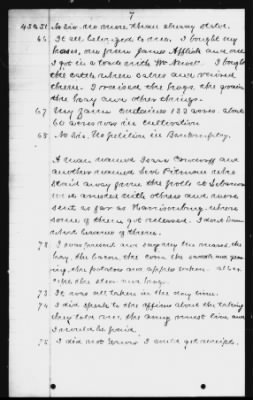 7
43 to 51 No Sir. no more than already stated.
66 It all belonged to me. I bought my
horses, one from James Afflick and one
I got in a trade with Mr Newell. I bought
the cattle when calves and raised
them. I raised the hogs, the grain
the hay and other things.
67 My farm contains 123 acres. about
60 acres was in cultivation
68 No Sir. No petition in Bankruptcy.
A man named Isaac and
another named Pitman who
staid away from the polls at Lebanon
was arrested with others and were
sent as far as Harrisonburg where
some of them got released. I dont know
what became of them.
72 I was present and saw them take the horses the
hay, the bacon, the corn the
the potatoes and apples taken.
the
73 It was all taken in the day time.
74 I did speak to the officers about the taking
they told me, the army must live and
I would be paid.
75 I did not know I could get receipts.